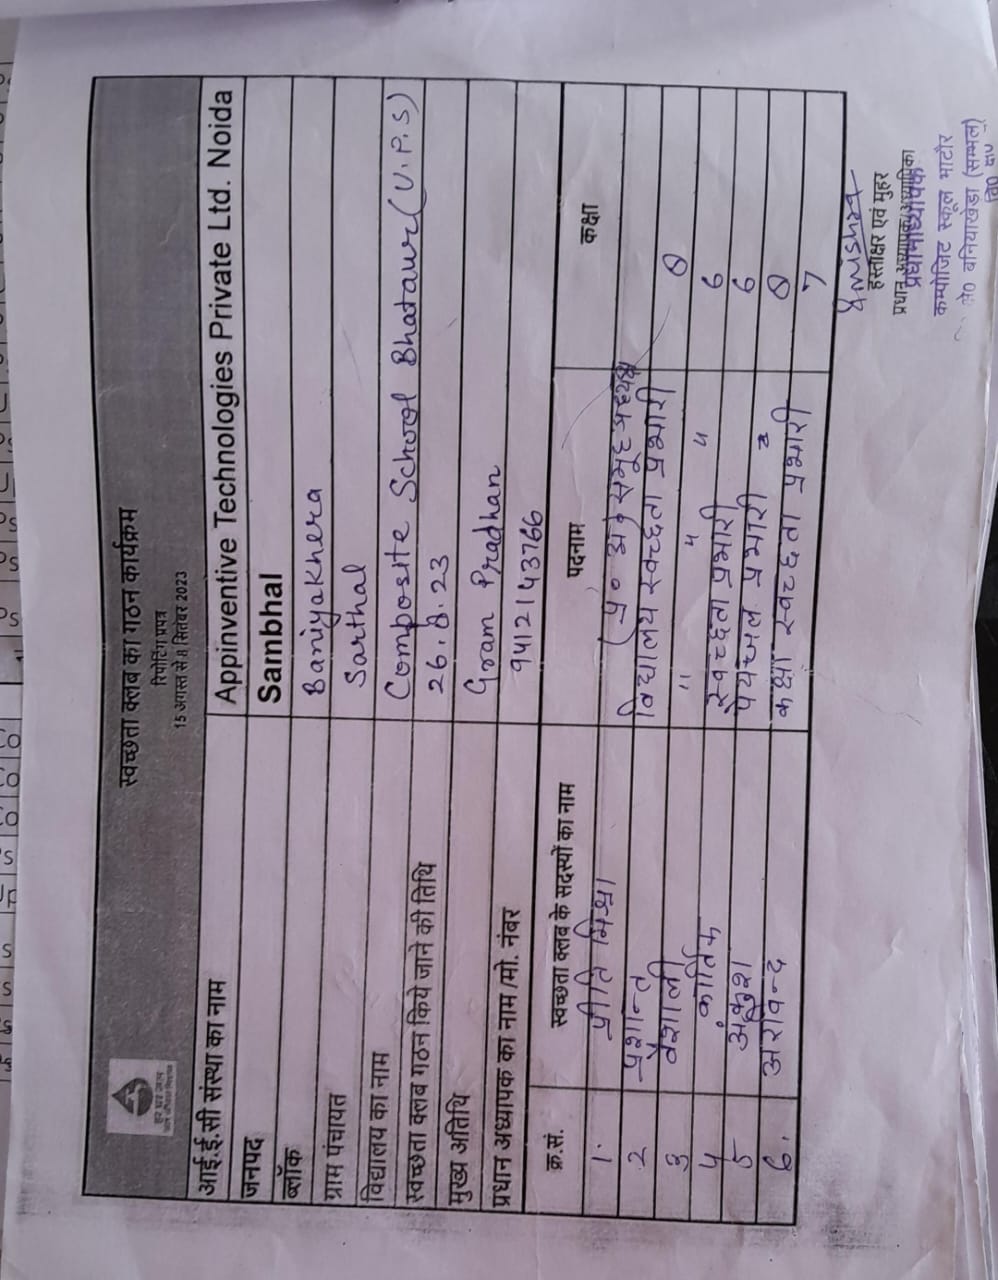 स्वच्छता क्लब का गठन कार्यक्रम
रिपोर्टिंग प्रपत्र
15 अगस्त से 8 सितंबर 2023
हर घर जल
जल जीवन मिशन
आई.ई.सी संस्था का नाम Appinventive Technologies Private Ltd. Noida
जनपद Sambhal
ब्लॉक Baniyakhera
ग्राम पंचायत Sarthal
विद्यालय का नाम Composite School Bhataur (U.P.S)
स्वच्छता क्लब गठन किये जाने की तिथि 26.8.23
मुख्य अतिथि Gram Pradhan
प्रधान अध्यापक का नाम/मो. नंबर 9412143766
क्र.सं. स्वच्छता क्लब के सदस्यों का नाम पदनाम कक्षा
1. प्रीति मिश्रा (प्र० अ०
2 प्रशान्त विद्यालय स्वच्छता प्रभारी 8
3 वैशाली " " " 6
4 कार्तिक स्वच्छता प्रभारी 6
5 अंकुश पेयजल प्रभारी 8
6. अरविन्द कक्षा स्वच्छता प्रभारी 7
हस्ताक्षर एवं मुहर
प्रधान अध्यापक/अध्यापिका
प्रधानाध्यापक
कम्पोजिट स्कूल भाटौर
बनियाखेडा (सम्भल)